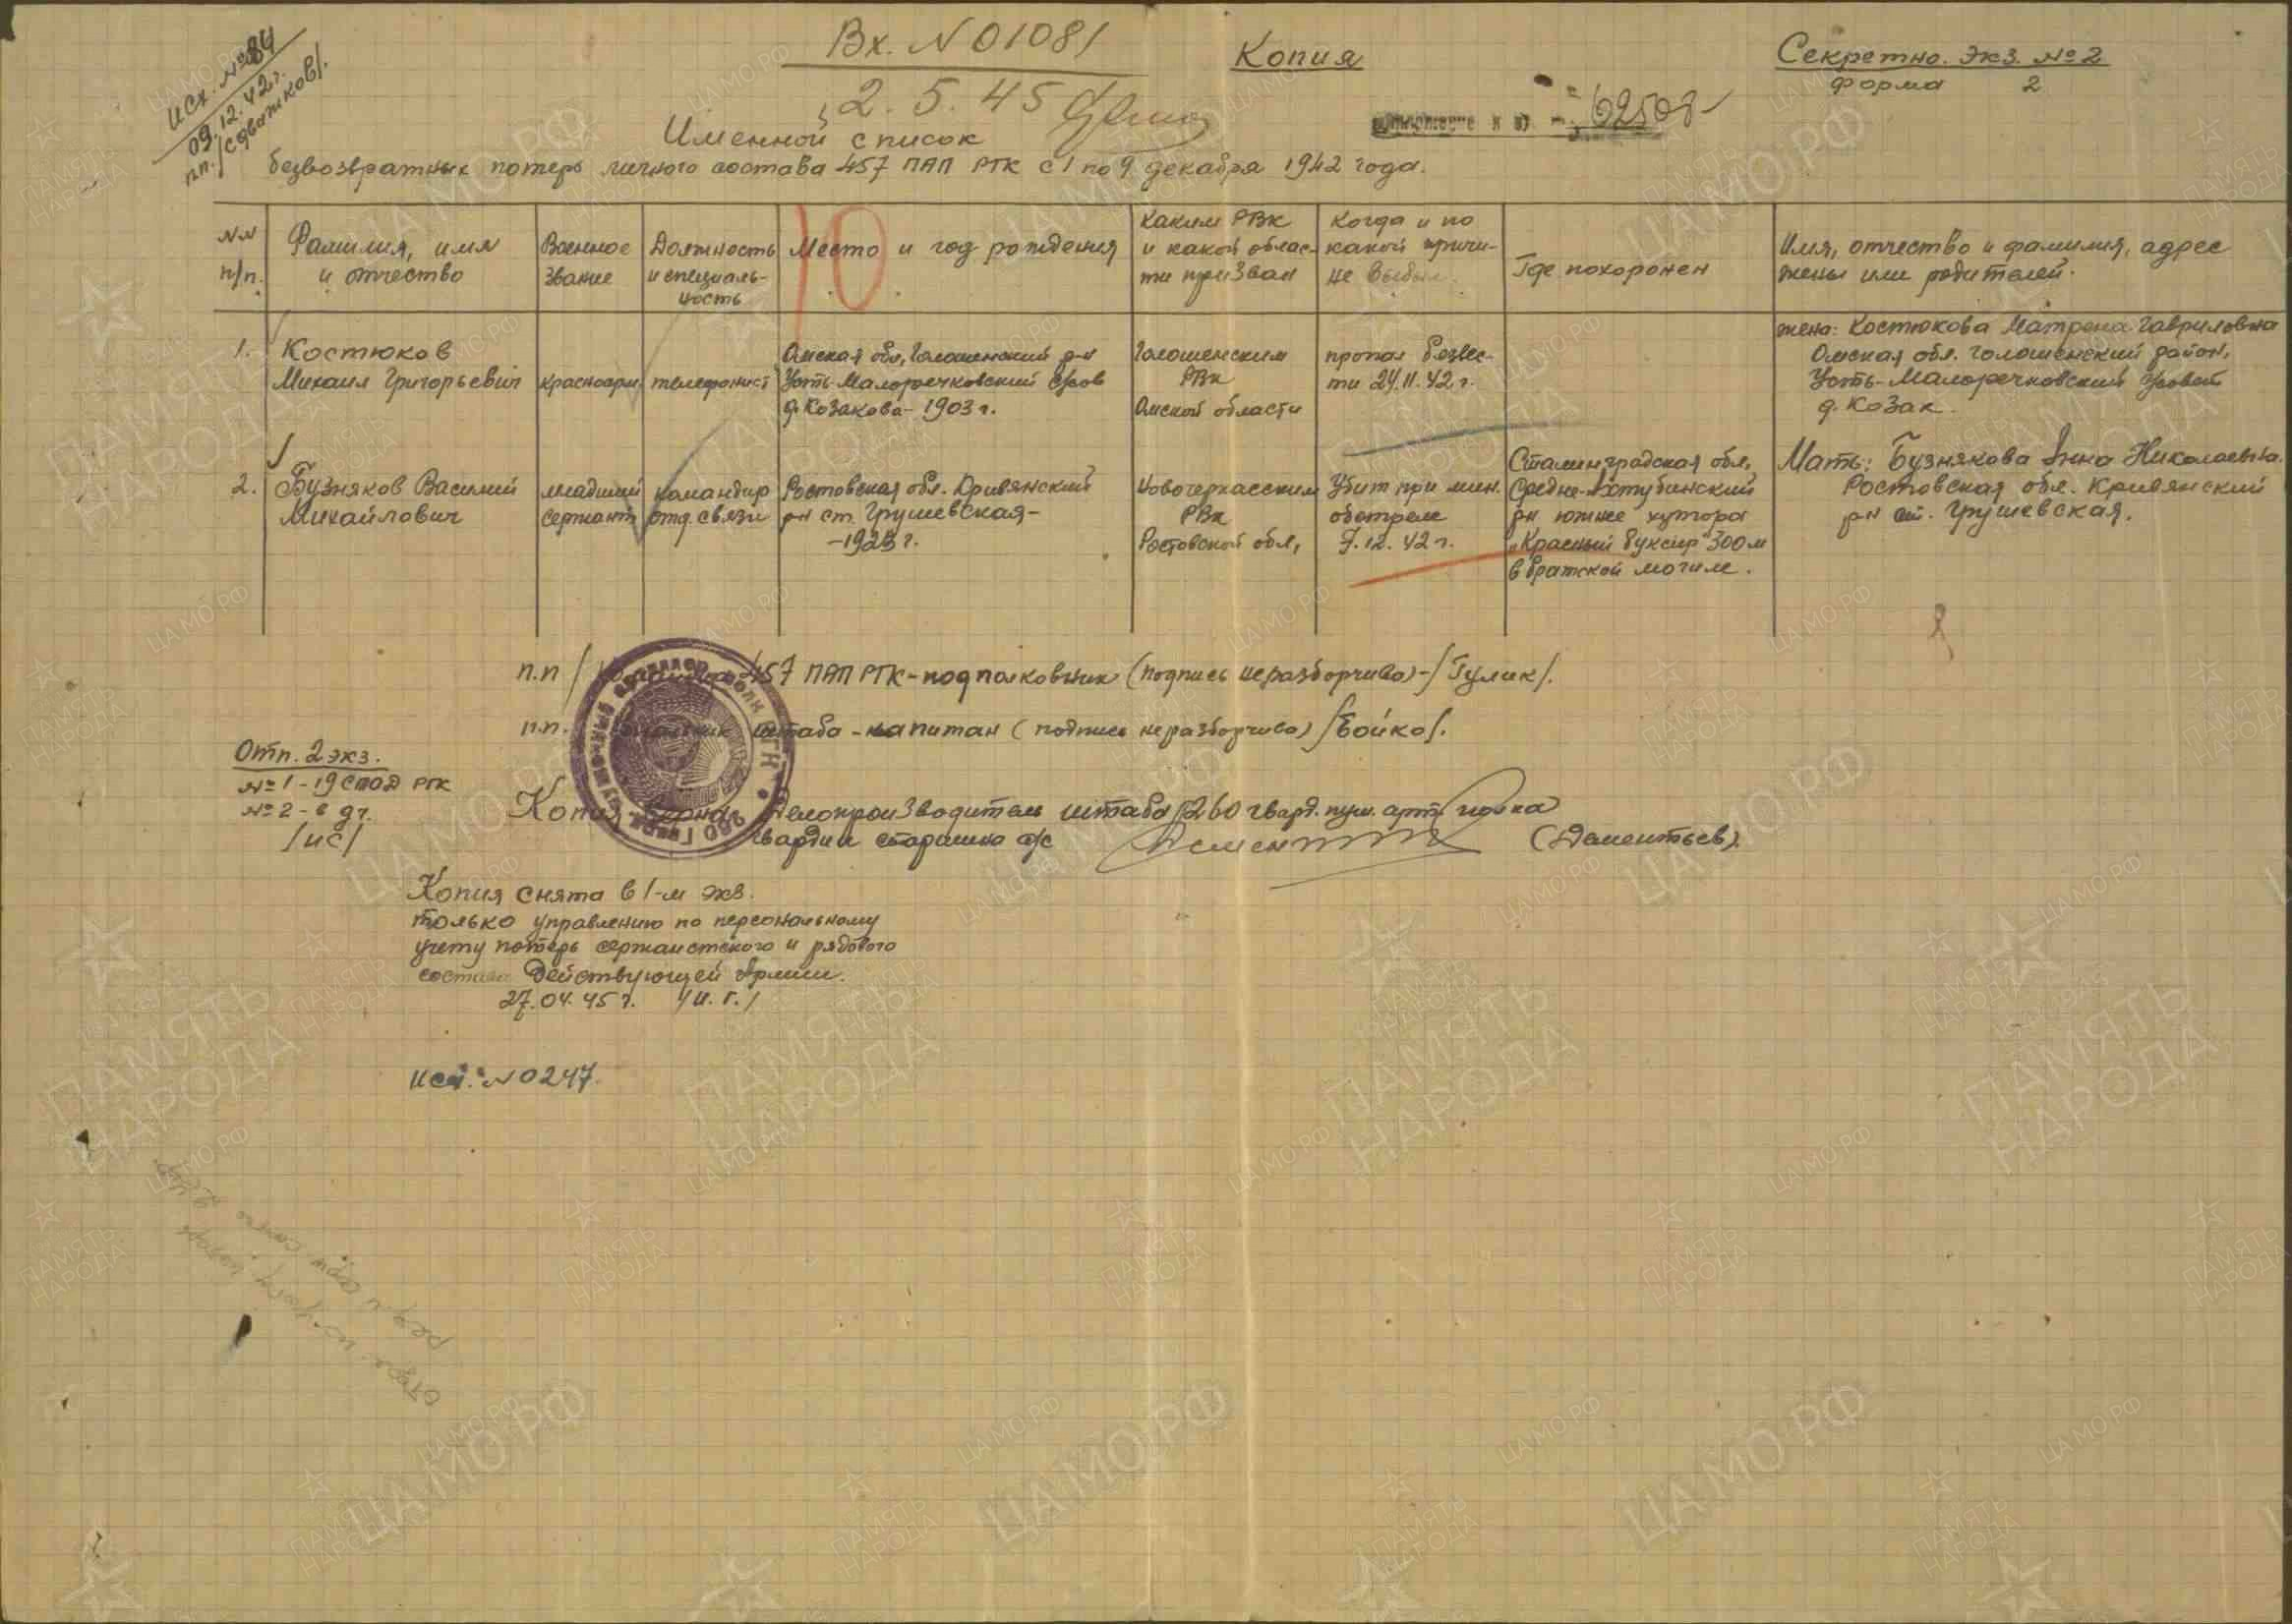 Исх. №84
09.12.42г.
пп./Сдвижков/.
Вх. N 01081
2.5.45
Копия
Секретно. Экз. №2
форма 2
62508
Именной список
безвозвратных потерь личного состава 457 ПАП РГК с 1 по 9 декабря 1942 года.
NN п/п.
Фамилия, имя и отчество
Военное звание
Должность и специальность
Место и год рождения
Каким РВК и какой области призван
Когда и по какой причине выбыл.
Где похоронен
Имя, отчество и фамилия, адрес жены или родителей.
10
1.
Костюков
Михаил Григорьевич
красноарм
телефонист
Омская обл, Голошенский р-н
Усть-Малоречковский с/сов
д. Козакова - 1903 г.
Голошенским
РВК
Омской области
пропал безвес-
ти 24.11.42 г.
жена: Костюкова Матрена Гавриловна
Омская обл. Голошенский район,
Усть-Малоречковский с/совет
д. Козак.
2.
Бузняков Василий
Михайлович
младший
сержант
командир
отд. связи
Ростовская обл. Кривянский
р-н ст. Грушевская-
-1923 г.
Новочеркасским
РВК
Ростовской обл,
Убит при мин.
обстреле
7.12.42 г.
Сталинградская обл,
Средне-Ахтубинский
р-н южнее хутора
"Красный буксир" 300 м
в братской могиле.
Мать: Бузнякова Анна Николаевна.
Ростовская обл. Кривянский
р-н ст. Грушевская.
п.п / 457 ПАП РГК - подполковник (подпись неразборчиво) - /Гулик/.
п.п. штаба - капитан (подпись неразборчиво) /Бойко/.
Отп. 2 экз.
№1 - 19 СПОД РГК
№2 - в д.
/ИС/
Копия верна: Делопроизводитель штаба 260 гвард. пуш. арт. полка
гвардии старшина а/с (Дементьев).
Копия снята в 1-м экз.
только управлению по персональному
учету потерь сержантского и рядового
состава Действующей Армии.
27.04.45 г. /И.Г./
исх. N 0247.
ПАМЯТЬ НАРОДА
ЦАМО.РФ